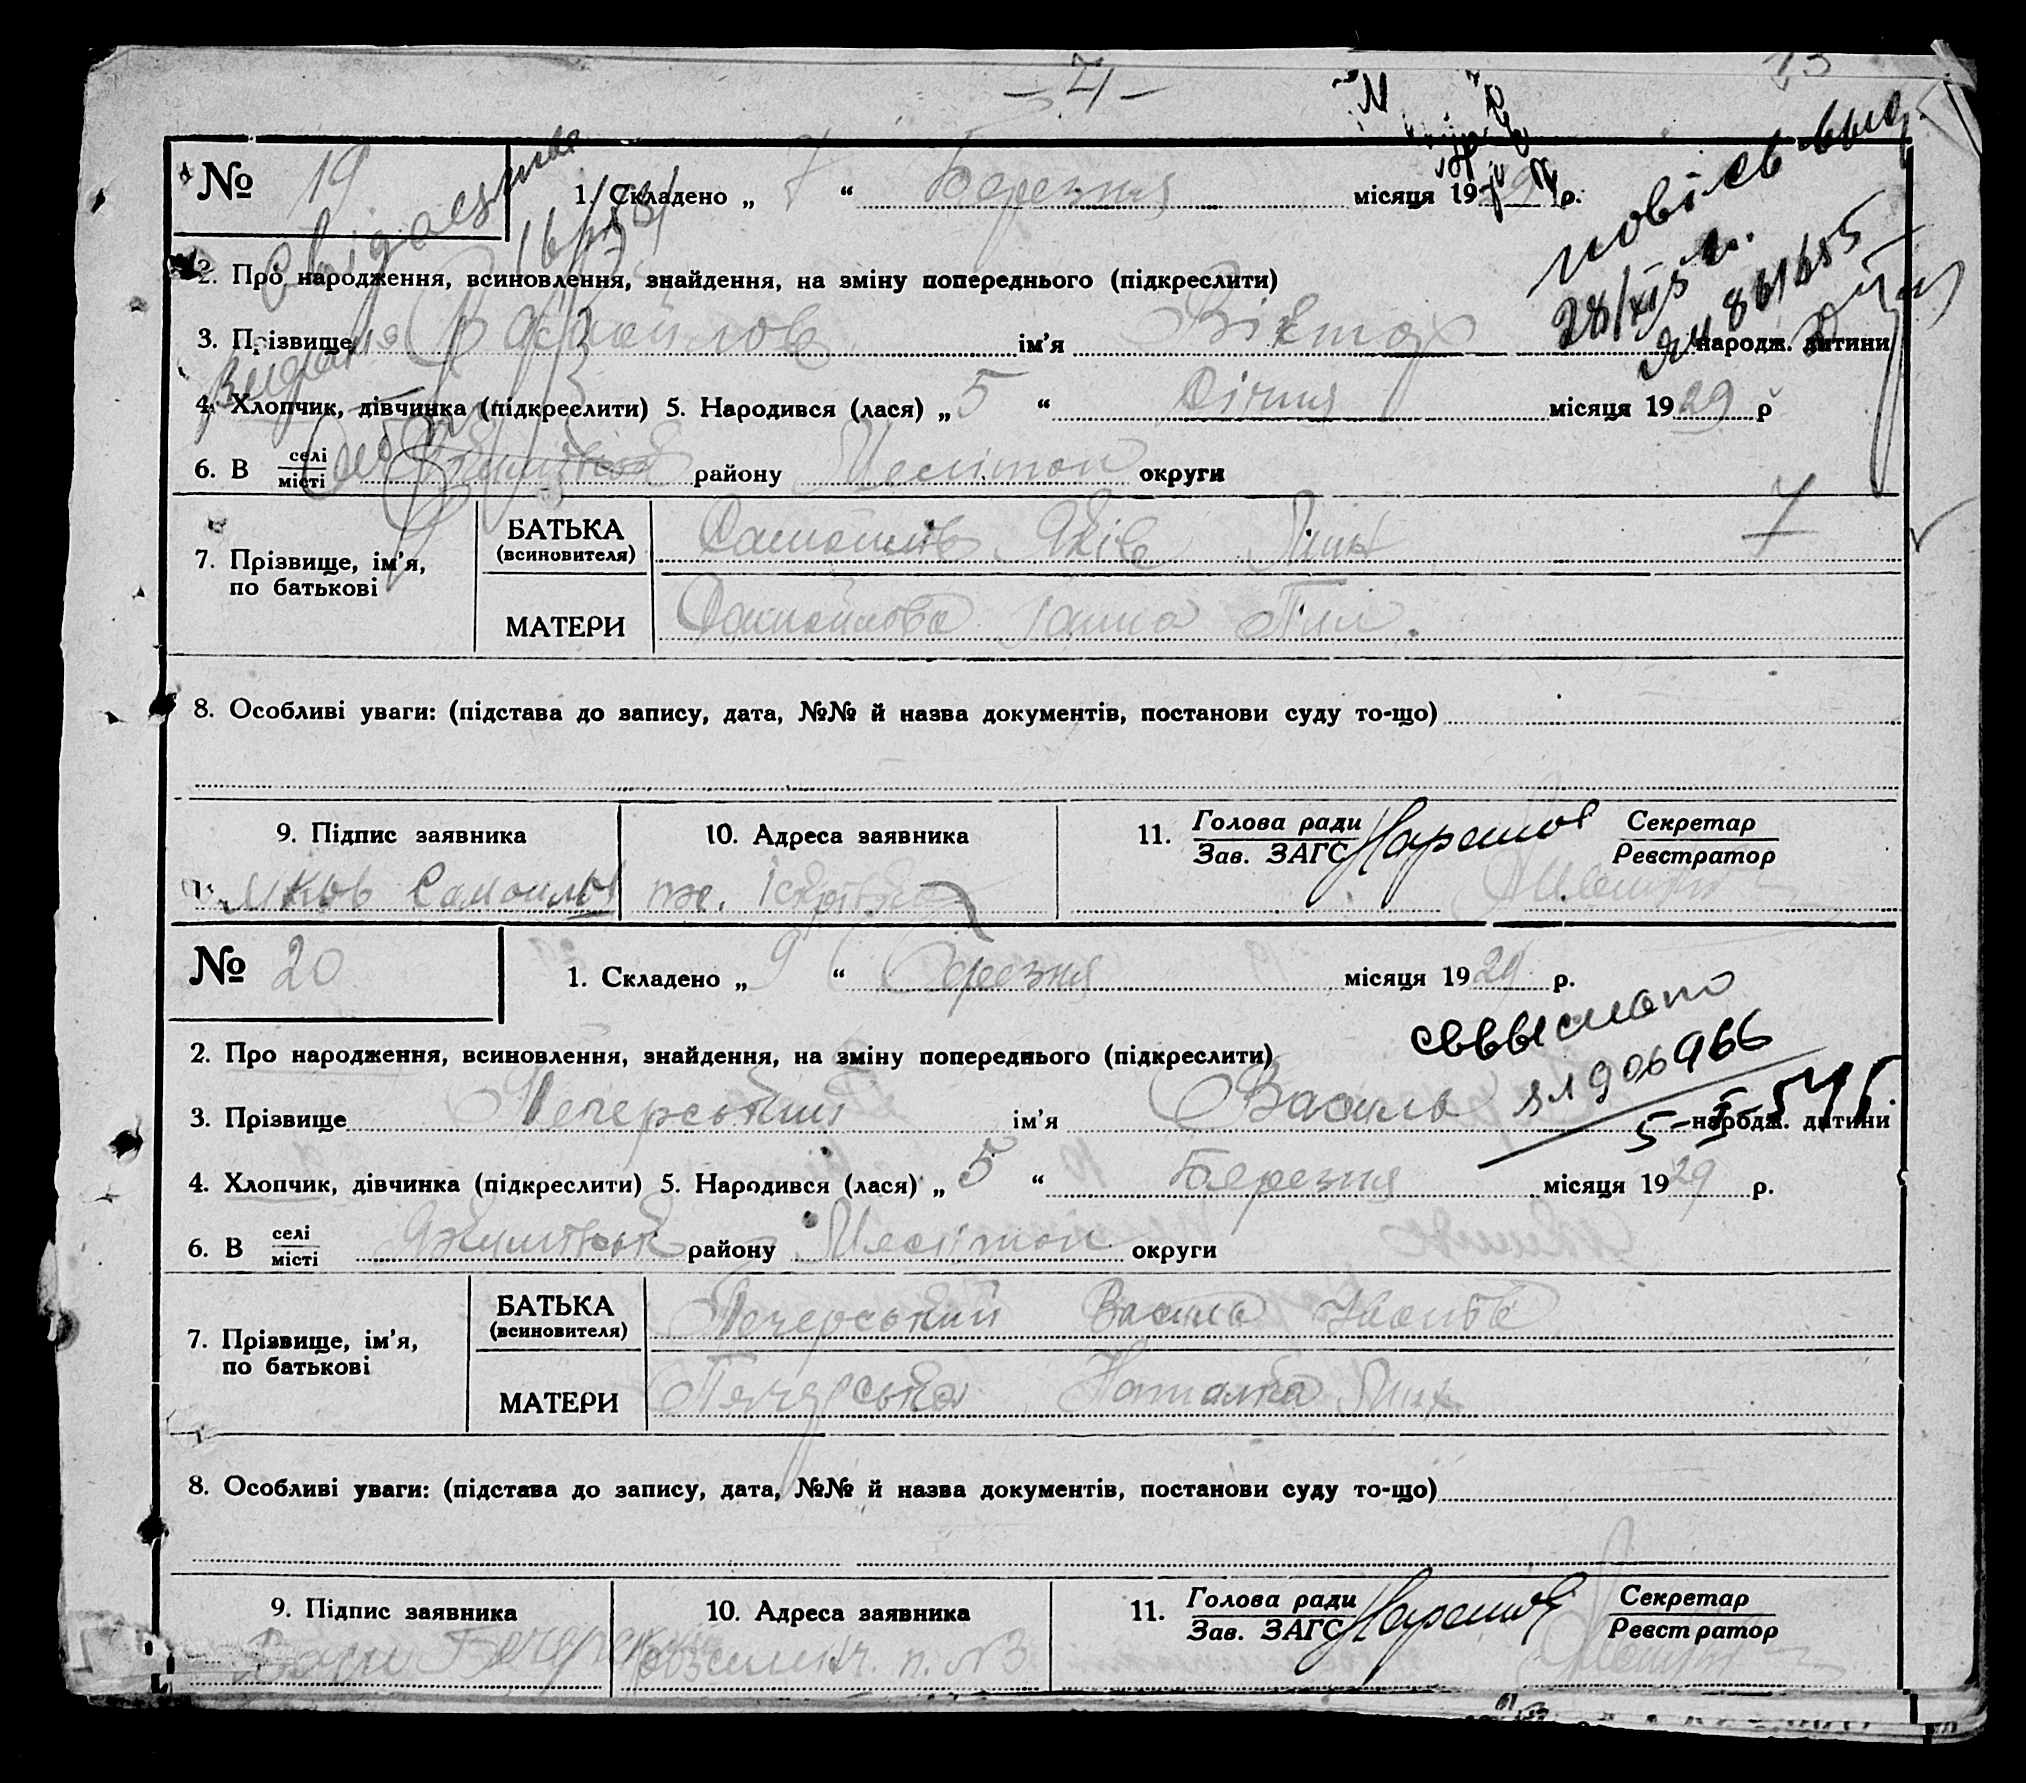 – 4 –
№ 19
1. Складено „ 7 “ Березня місяця 1929 р.
2. Про народження, всиновлення, знайдення, на зміну попереднього (підкреслити)
3. Прізвище Самойлов ім’я Віктор народж. дитини
повт св выд
28/XI 5
861655
4. Хлопчик, дівчинка (підкреслити) 5. Народився (лася) „ 5 “ Січня місяця 1929 р
6. В селі/місті Якимівськ району Мелітоп округи
7. Прізвище, ім’я, по батькові
БАТЬКА (всиновителя) Самойлов Яків
МАТЕРИ Самойлова Ганна Пил.
8. Особливі уваги: (підстава до запису, дата, №№ й назва документів, постанови суду то-що)
9. Підпис заявника
Яков Самоилов
10. Адреса заявника
11. Голова ради/Зав. ЗАГС Секретар/Реєстратор
№ 20
1. Складено „ 9 “ Березня місяця 1929 р.
сввыслано
906966
5-I-54г.
2. Про народження, всиновлення, знайдення, на зміну попереднього (підкреслити)
3. Прізвище Печерський ім’я Василь народж. дитини
4. Хлопчик, дівчинка (підкреслити) 5. Народився (лася) „ 5 “ Березня місяця 1929 р.
6. В селі/місті Якимівськ району Мелітоп округи
7. Прізвище, ім’я, по батькові
БАТЬКА (всиновителя) Печерський Василь
МАТЕРИ Печерська Наталка
8. Особливі уваги: (підстава до запису, дата, №№ й назва документів, постанови суду то-що)
9. Підпис заявника
10. Адреса заявника
п. №3
11. Голова ради/Зав. ЗАГС Секретар/Реєстратор